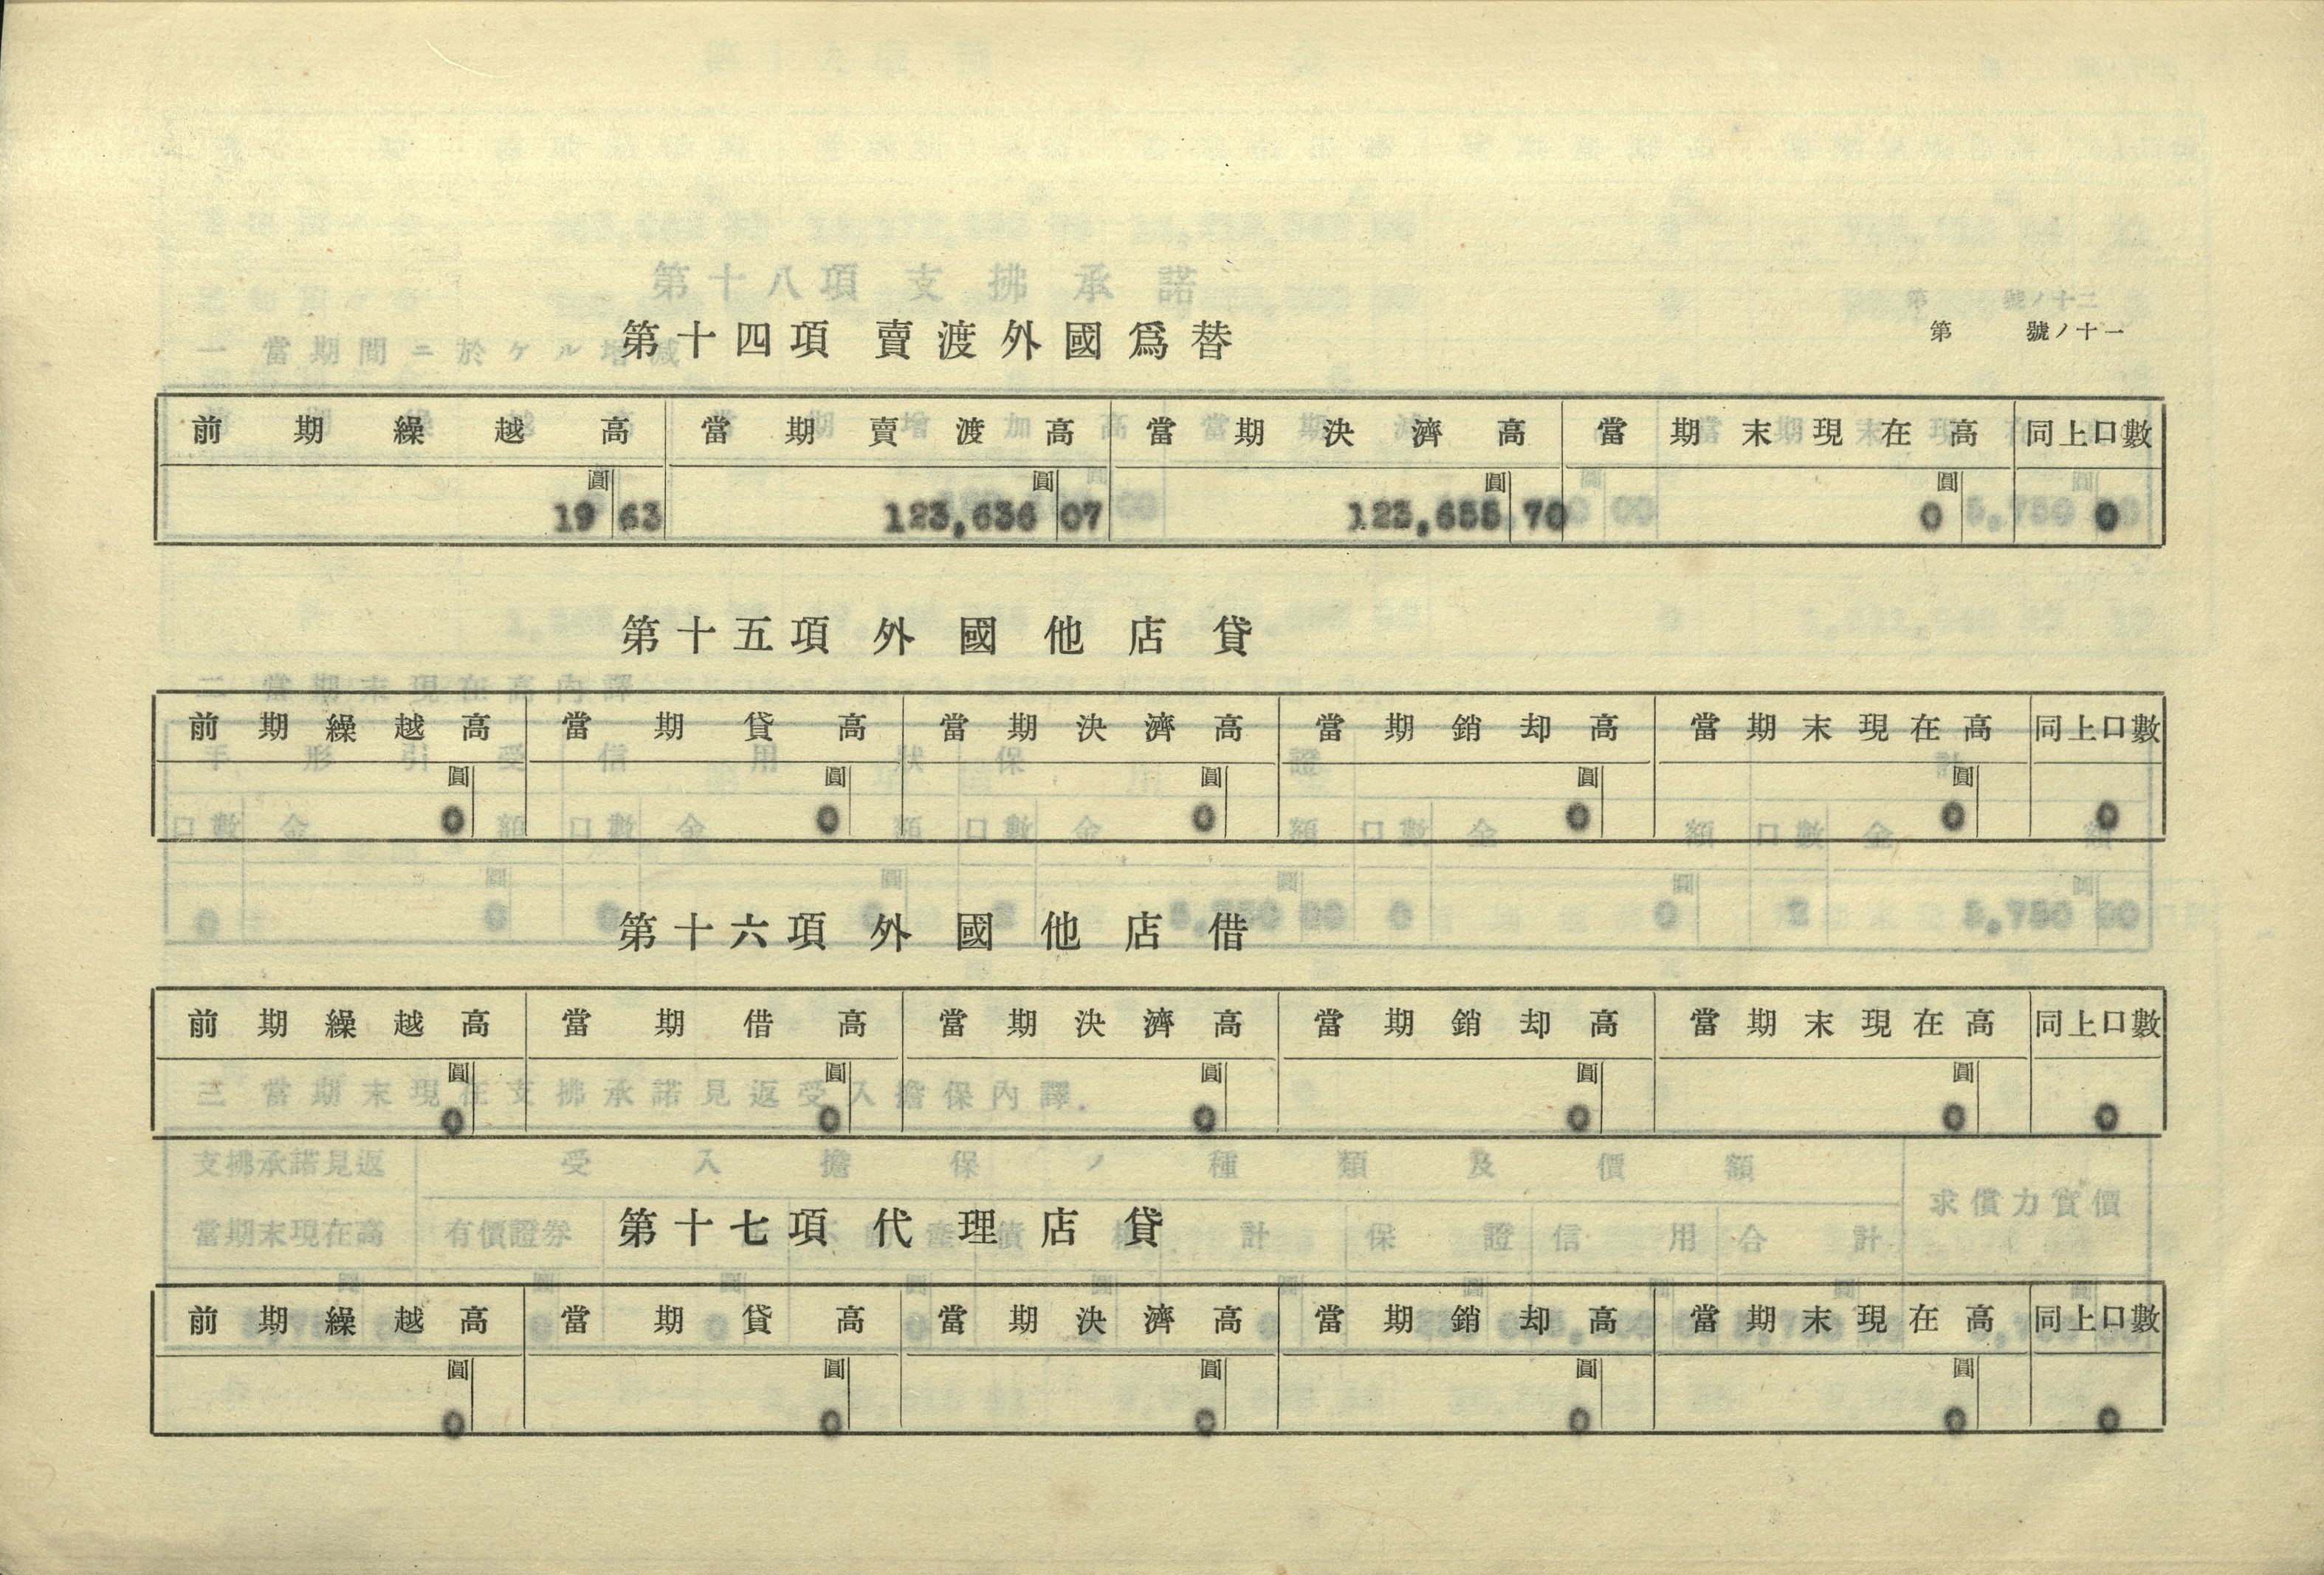 第十四項 賣渡外國爲替
第 號ノ十一
前期繰越高 當期賣渡高 當期決濟高 當期末現在高 同上口數
圓 圓 圓 圓
19 63 123,636 07 123,655 70 0 0
第十五項 外國他店貸
前期繰越高 當期貸高 當期決濟高 當期銷却高 當期末現在高 同上口數
圓 圓 圓 圓 圓
0 0 0 0 0 0
第十六項 外國他店借
前期繰越高 當期借高 當期決濟高 當期銷却高 當期末現在高 同上口數
圓 圓 圓 圓 圓
0 0 0 0 0 0
第十七項 代理店貸
前期繰越高 當期貸高 當期決濟高 當期銷却高 當期末現在高 同上口數
圓 圓 圓 圓 圓
0 0 0 0 0 0